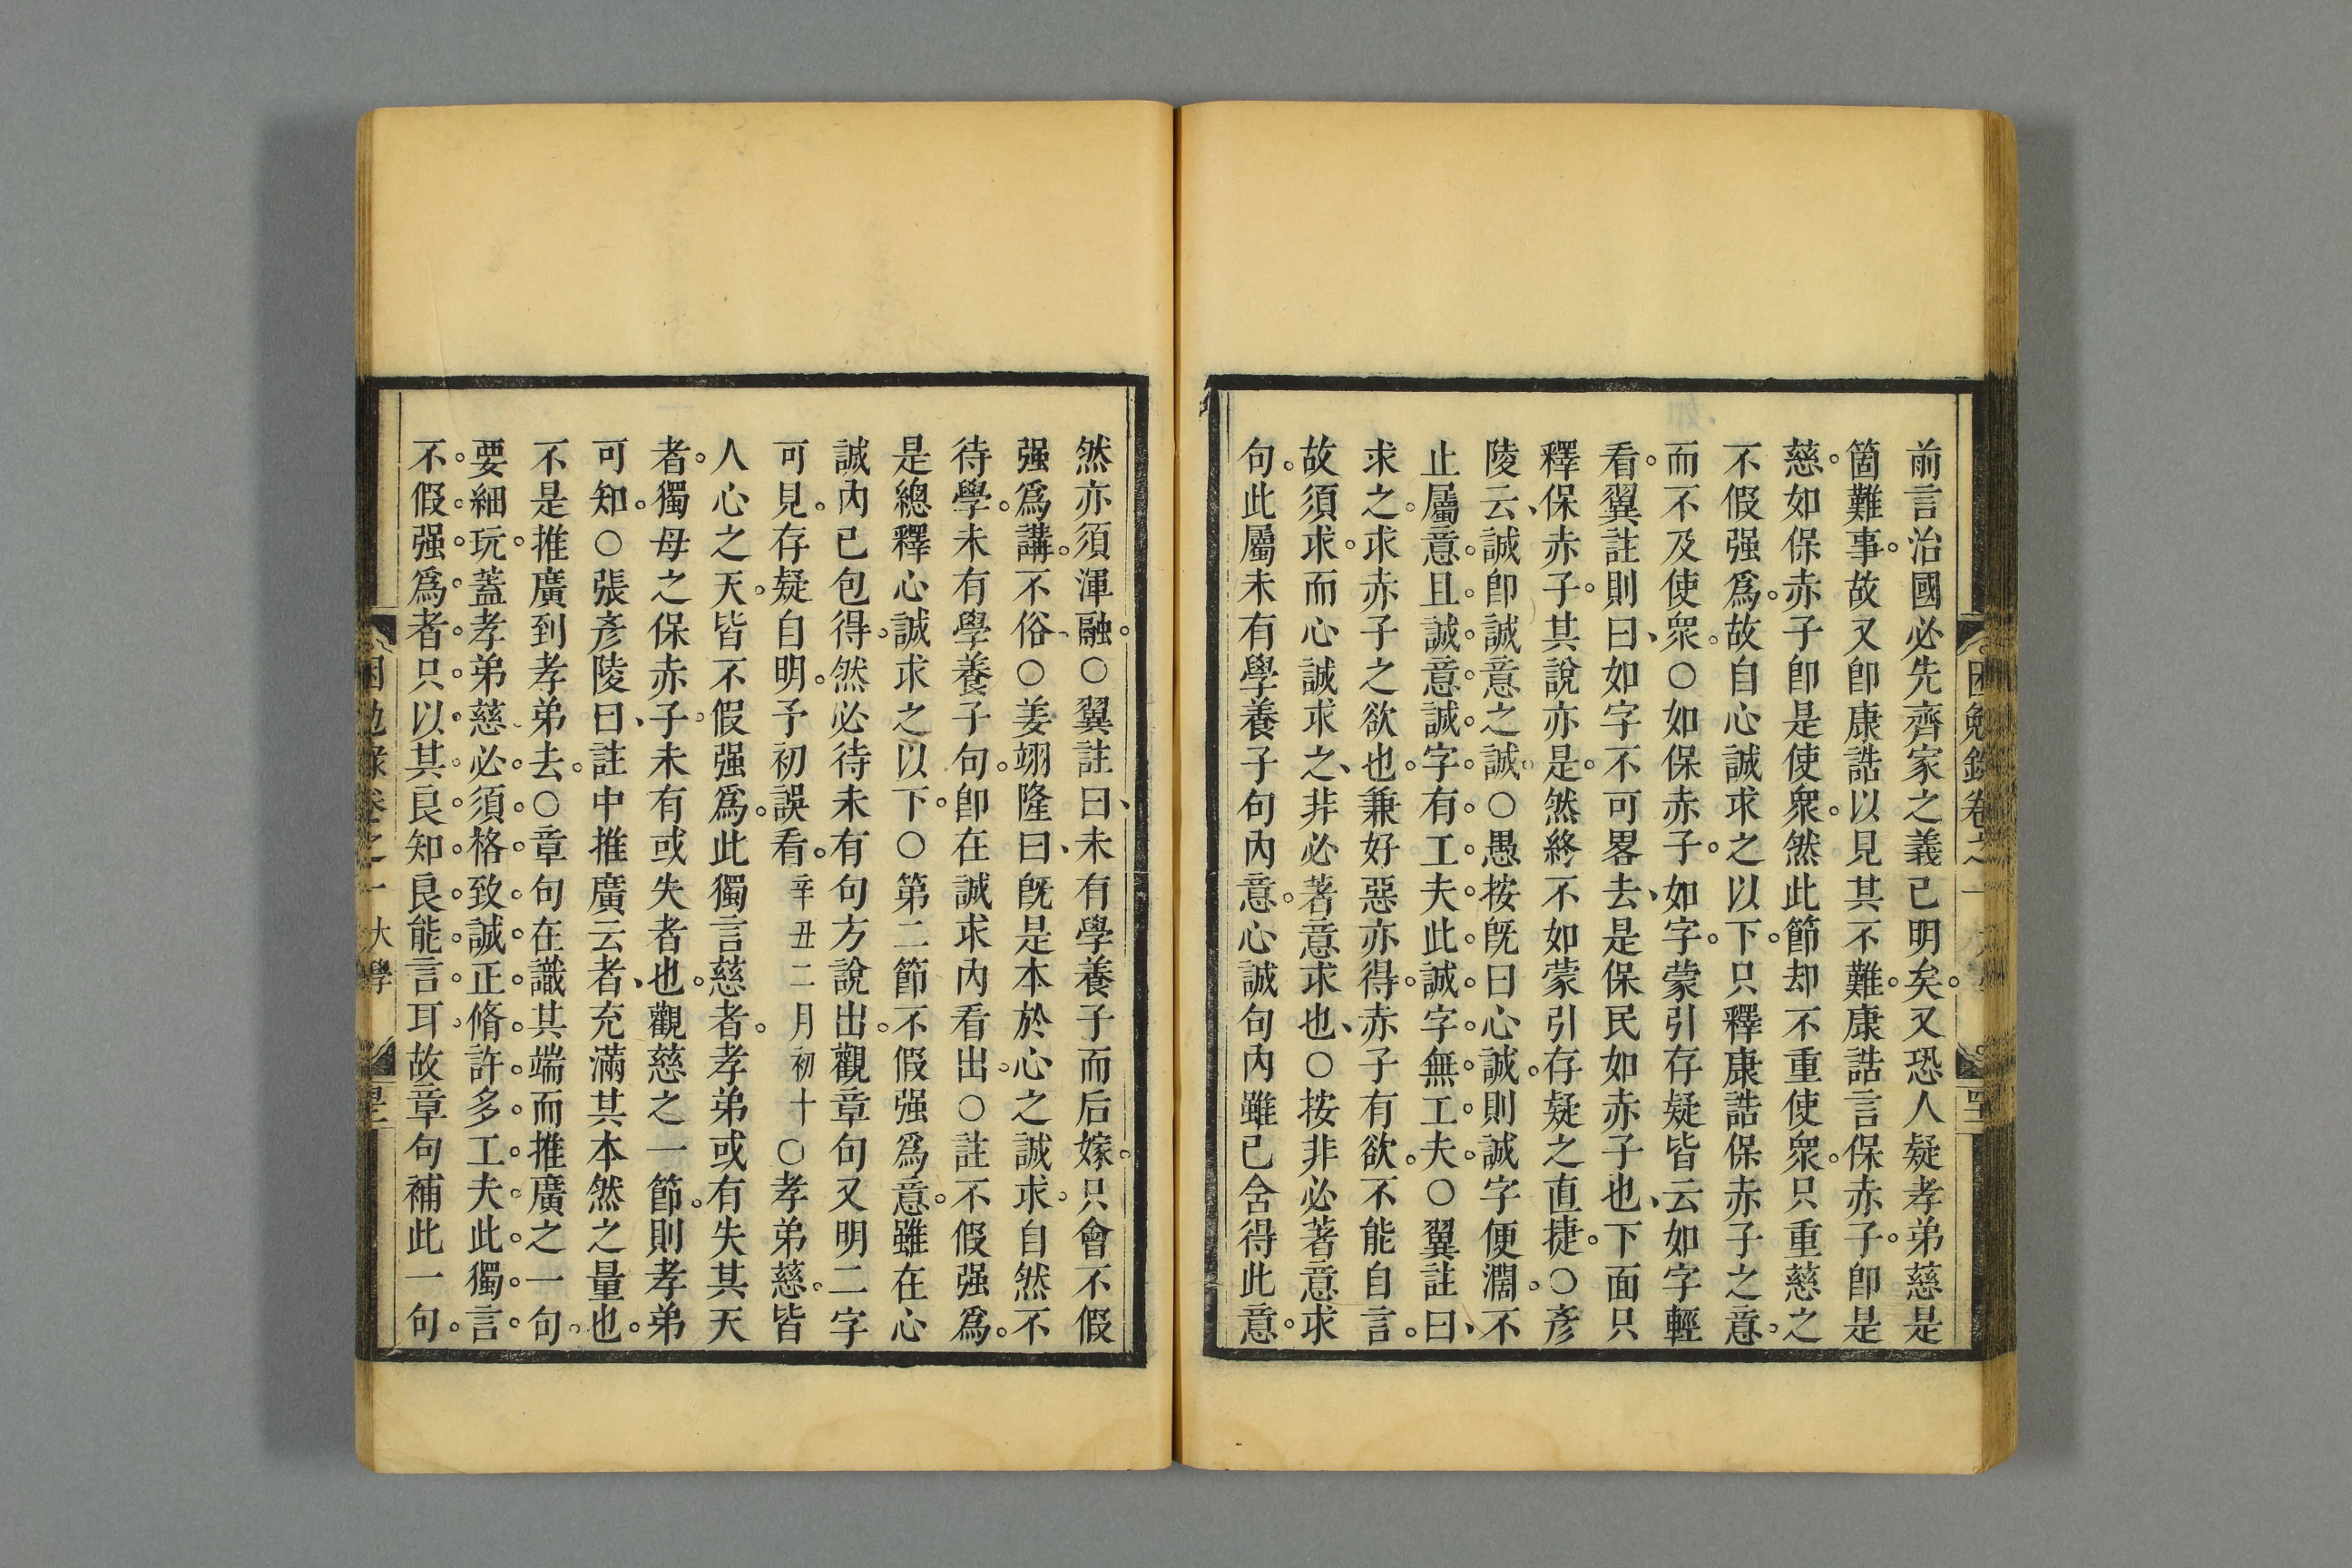 前言治國必先齊家之義已明矣。又恐人疑孝弟慈是
箇難事。故又卽康誥以見其不難。康誥言保赤子。卽是
慈。如保赤子卽是使衆。然此節却不重使衆。只重慈之
不假强爲。故自心誠求之以下。只釋康誥保赤子之意。
而不及使衆。○如保赤子。如字。蒙引存疑皆云如字輕
看。翼註則曰、如字不可畧去、是保民如赤子也、下面只
釋保赤子。其說亦是。然終不如蒙引存疑之直捷。○彥
陵云、誠卽誠意之誠。○愚按旣曰心誠。則誠字便濶。不
止屬意。且誠意誠字有工夫。此誠字無工夫。○翼註曰、
求之。求赤子之欲也。兼好惡亦得。赤子有欲。不能自言。
故須求。而心誠求之、非必著意求也、○按非必著意求
句。此屬未有學養子句內意。心誠句內雖已含得此意。
然亦須渾融。○翼註曰、未有學養子而后嫁。只會不假
强爲講。不俗。○姜翊隆曰、旣是本於心之誠求。自然不
待學。未有學養子句。卽在誠求內看出。○註不假强爲。
是總釋心誠求之以下。○第二節不假强爲意。雖在心
誠內已包得。然必待未有句方說出。觀章句又明二字
可見。存疑自明。予初誤看。辛丑二月初十○孝弟慈。皆
人心之天。皆不假强爲。此獨言慈者。孝弟或有失其天
者。獨母之保赤子。未有或失者也。觀慈之一節。則孝弟
可知。○張彥陵曰、註中推廣云者、充滿其本然之量也。
不是推廣到孝弟去。○章句在識其端而推廣之一句。
要細玩。蓋孝弟慈必須格致誠正脩許多工夫。此獨言
不假强爲者。只以其良知良能言耳。故章句補此一句。
困勉錄卷之一 大學